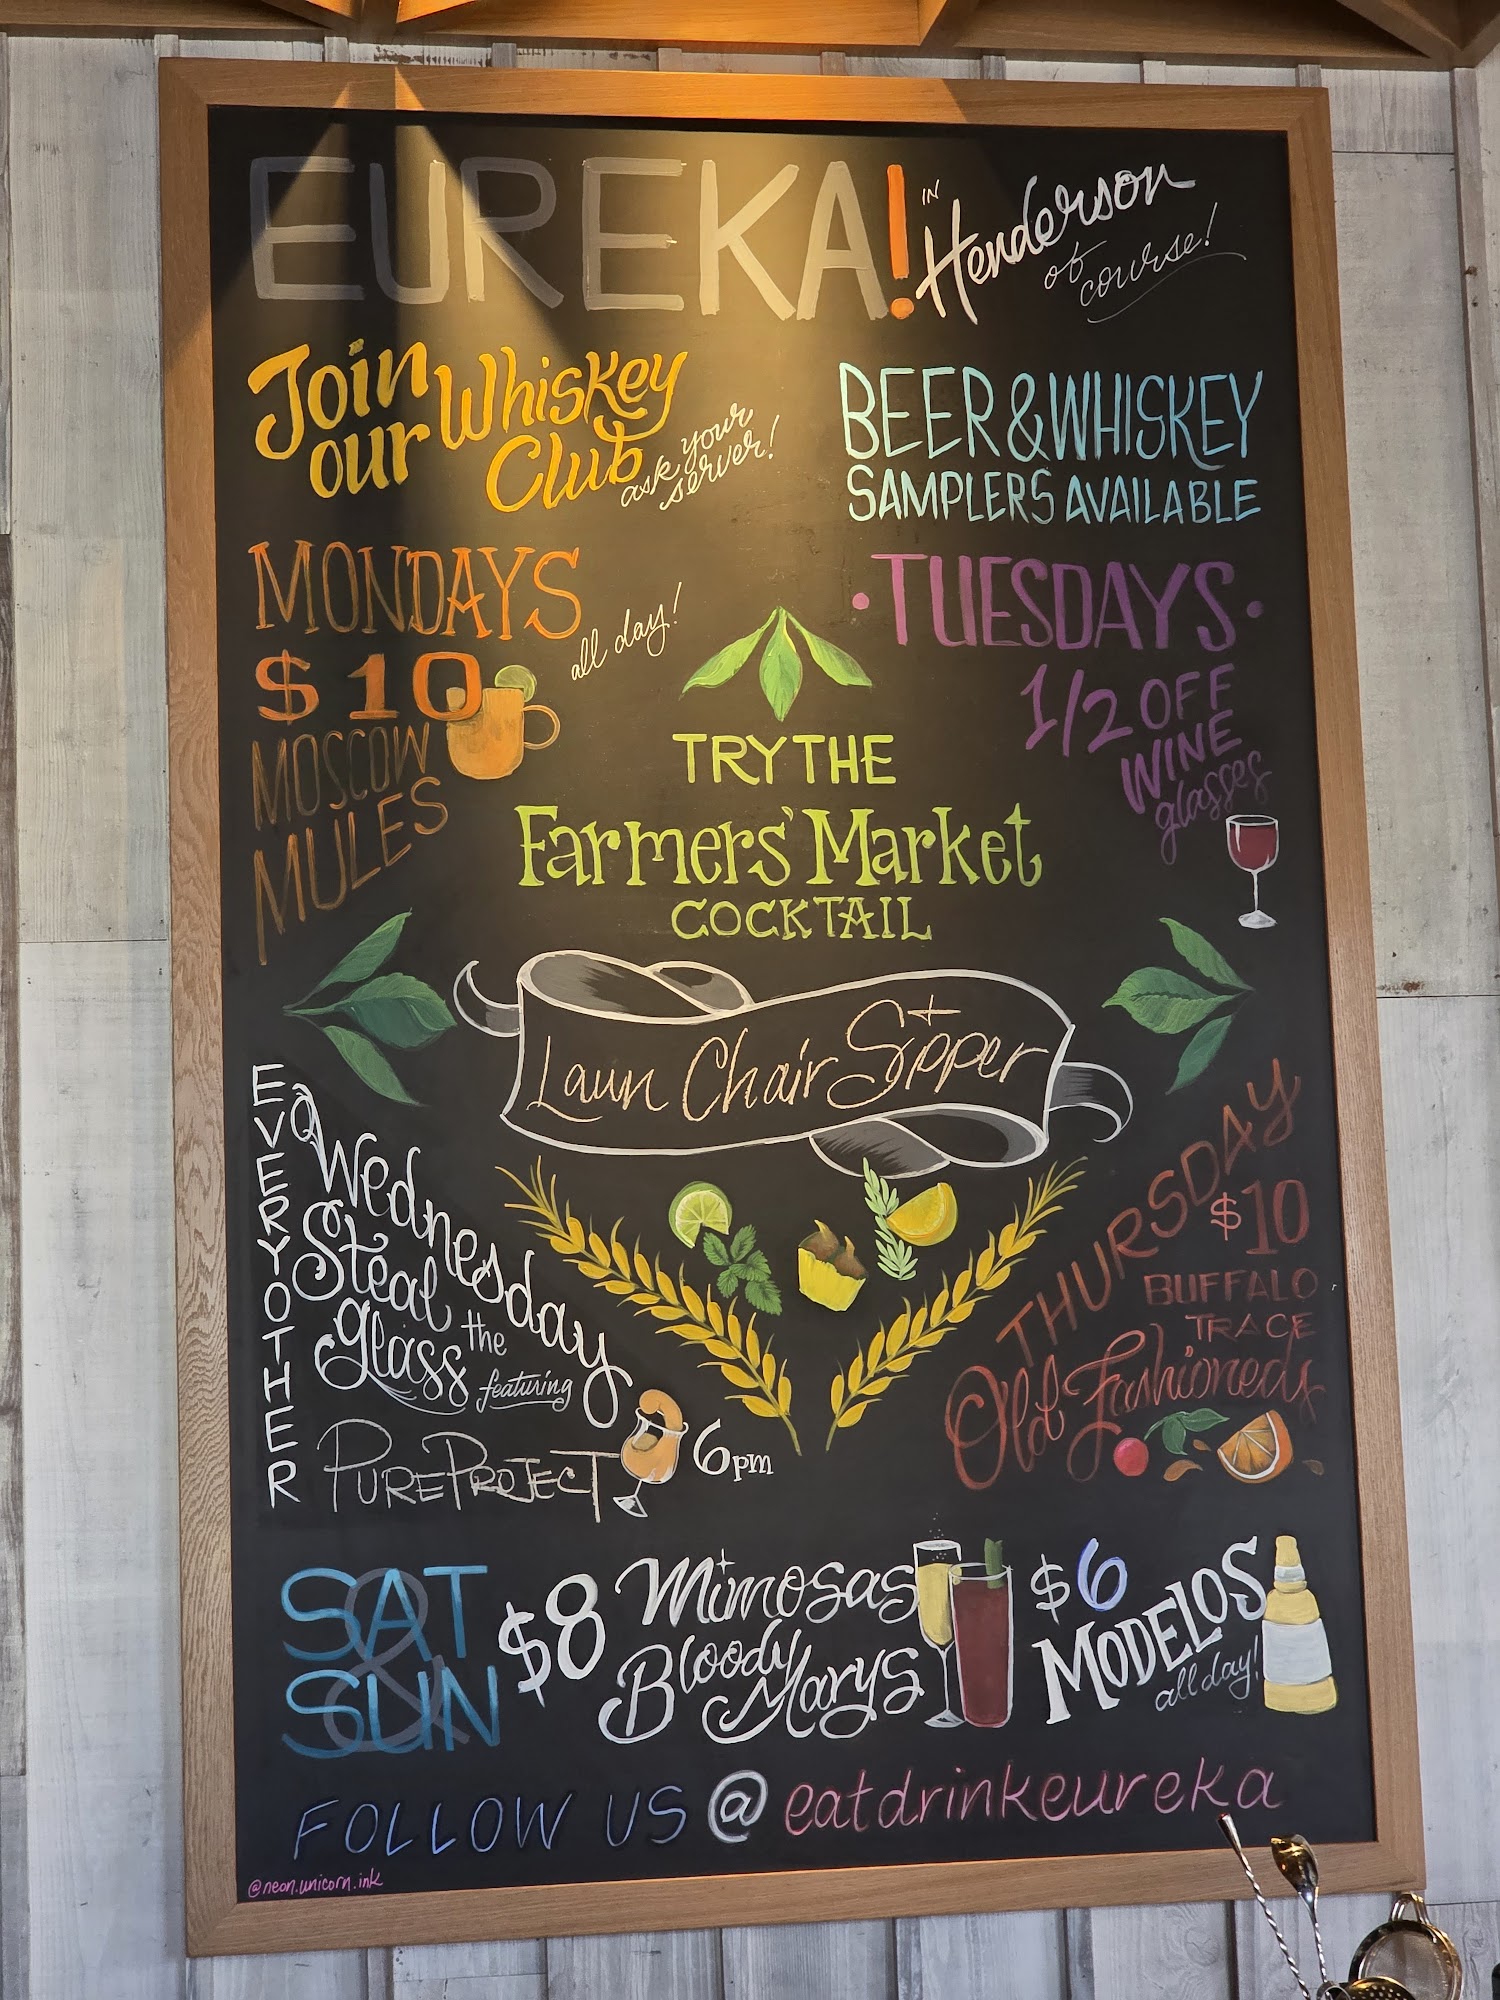 EUREKA! IN Henderson
of course!
Join our Whiskey Club
ask your server!
BEER & WHISKEY
SAMPLERS AVAILABLE
MONDAYS
all day!
$10
MOSCOW
MULES
• TUESDAYS •
1/2 OFF
WINE
glasses
TRY THE
Farmers' Market
COCKTAIL
Lawn Chair Sipper
EVERY OTHER
Wednesday
Steal
the
glass
featuring
PUREPROJECT
6pm
THURSDAY
$10
BUFFALO
TRACE
Old Fashioneds
SAT
&
SUN
$8 Mimosas
Bloody Marys
$6
MODELOS
all day!
FOLLOW US @eatdrinkeureka
@neon.unicorn.ink